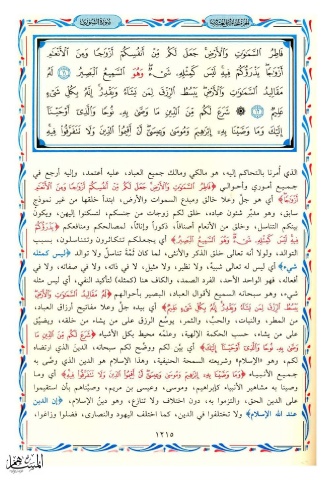 سورة الشورى
فَاطِرُ السَّمَوَتِ وَالْأَرْضِ جَعَلَ لَكُم مِّنْ أَنفُسِكُمْ أَزْوَجًا وَمِنَ الْأَنْعَمِ
أَزْوَجًا يَذْرَؤُكُمْ فِيهِ لَيْسَ كَمِثْلِهِ شَىْءٌ وَهُوَ السَّمِيعُ الْبَصِيرُ ۝ لَهُ
مَقَالِيدُ السَّمَوَتِ وَالْأَرْضِ يَبْسُطُ الرِّزْقَ لِمَن يَشَاءُ وَيَقْدِرُ إِنَّهُ بِكُلِّ شَىْءٍ
عَلِيمٌ ۝ شَرَعَ لَكُم مِّنَ الدِّينِ مَا وَصَّى بِهِ نُوحًا وَالَّذِى أَوْحَيْنَا
إِلَيْكَ وَمَا وَصَّيْنَا بِهِ إِبْرَهِيمَ وَمُوسَى وَعِيسَى أَنْ أَقِيمُوا الدِّينَ وَلَا تَتَفَرَّقُوا فِيهِ
الذي أمرنا بالتحاكم إليه، هو مالكي ومالك جميع العباد، عليه أعتمد، وإليه أرجع في
جميع أموري وأحوالي ﴿فَاطِرُ السَّمَوَتِ وَالْأَرْضِ جَعَلَ لَكُم مِّنْ أَنفُسِكُمْ أَزْوَجًا وَمِنَ الْأَنْعَمِ
أَزْوَجًا﴾ أي هو جلَّ وعلا خالق ومبدع السموات والأرض، ابتدأ خلقها من غير نموذج
سابق، وهو مدبِّر شئون عباده، خلق لكم زوجات من جنسكم، لتسكنوا إليهن، ويكون
بينكم التناسل، وخلق من الأنعام أصنافاً، ذكوراً وإناثاً، لمصالحكم ومنافعكم ﴿يَذْرَؤُكُمْ
فِيهِ لَيْسَ كَمِثْلِهِ شَىْءٌ وَهُوَ السَّمِيعُ الْبَصِيرُ﴾ أي يجعلكم تتكاثرون وتتناسلون، بسبب
التوالد، ولولا أنه تعالى خلق الذكر والأنثى، لما كان ثَمَّةَ تناسلٌ ولا توالد ﴿ليس كمثله
شيء﴾ أي ليس له تعالى شبيهٌ، ولا نظير، ولا مثيل، لا في ذاته، ولا في صفاته، ولا في
أفعاله، فهو الواحد الأحد، الفرد الصمد، والكاف هنا (كمثله) لتأكيد النفي، أي ليس مثله
شيء، وهو سبحانه السميع لأقوال العباد، البصير بأحوالهم ﴿لَهُ مَقَالِيدُ السَّمَوَتِ وَالْأَرْضِ
يَبْسُطُ الرِّزْقَ لِمَن يَشَاءُ وَيَقْدِرُ إِنَّهُ بِكُلِّ شَىْءٍ عَلِيمٌ﴾ أي بيده جلَّ وعلا مفاتيح أرزاق العباد،
من المطر، والنبات، والحبِّ، والثمر، يوسِّع الرزق على من يشاء من خلقه، ويضيِّق
على من يشاء، حسب الحكمة الإلهية، وعلمُه محيط بكل الأشياء ﴿شَرَعَ لَكُم مِّنَ الدِّينِ مَا
وَصَّى بِهِ نُوحًا وَالَّذِى أَوْحَيْنَا إِلَيْكَ﴾ أي بيَّن لكم ووضَّح لكم سبحانه، الدين الذي ارتضاه
لكم، وهو «الإسلام» وشريعته السمحة الحنيفية، وهذا الإسلام هو الدين الذي وصَّى به
جميع الأنبياء ﴿وَمَا وَصَّيْنَا بِهِ إِبْرَهِيمَ وَمُوسَى وَعِيسَى أَنْ أَقِيمُوا الدِّينَ وَلَا تَتَفَرَّقُوا فِيهِ﴾ أي وما
وصينا به مشاهير الأنبياء كإبراهيم، وموسى، وعيسى بن مريم، وصيَّناهم بأن استقيموا
على الدين الحق، والتزموا به، دون اختلاف ولا تنازع، وهو دينُ الإسلام، ﴿إن الدين
عند الله الإسلام﴾ ولا تختلفوا في الدين، كما اختلف اليهود والنصارى، فضلوا وزاغوا،
١٢١٥